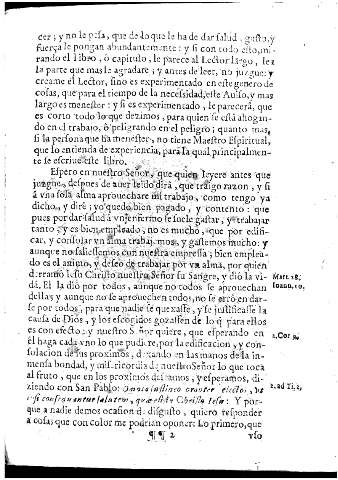 cer; y no le pesa, que de lo que le ha de dar salud, gasto, y
fuerça le pongan abundantemente: y si con todo esto, mi-
rando el libro, ò capitulo, le parece al Lector largo, lea
la parte que mas le agradare; y antes de leer, no juzgue: y
creame el Lector, sino es experimentado en este genero de
cosas, que para el tiempo de la necessidad, este Auiso, y mas
largo es menester: y si es experimentado, le parecerá, que
es corto todo lo que dezimos, para quien se está ahogan-
do en el trabajo, ò peligrando en el peligro; quanto mas,
si la persona que ha menester, no tiene Maestro Espiritual,
que lo entienda de experiencia, para la qual principalmen-
te se escriue este libro.
Espero en nuestro Señor, que quien leyere antes que
juzgue, despues de auer leido dirá, que traigo razon, y si
á vna sola alma aprouechare mi trabajo, como tengo ya
dicho, y diré; yo quedo bien pagado, y contento: que
pues por dar salud á vn enfermo se suele gastar, y trabajar
tanto; y es bien empleado, no es mucho, que por edifi-
car, y consolar vn alma trabajemos, y gastemos mucho: y
aunque no saliessemos con nuestra empressa; bien emplea-
do es el animo, y deseo de trabajar por vn alma, por quien
derramò Iesu Christo nuestro Señor su Sangre, y dió la vi-
da. El la dió por todos, aunque no todos se aprouechan
dellas y aunque no se aprouechen todos, no se errò en dar-
se por todos, para que nadie se quexasse, y se justificasse la
causa de Dios, y los escogidos gozassen de lo q̃ para ellos
es con efecto: y nuestro Señor quiere, que esperando en
él haga cada vno lo que pudiere, por la edificacion, y con-
solacion de sus proximos, dexando en las manos de la in-
mensa bondad, y misericordia de nuestro Señor lo que toca
al fruto, que en los proximos deseamos, y esperamos, di-
ziendo con San Pablo: Omnia sustineo propter electos, vt
& ipsi consequantur salutem, quæ est in Christo Iesu: Y por-
que a nadie demos ocasion de disgusto, quiero responder
a cosas que con color me podrian oponer: Lo primero, que
¶¶ 2 vso
Matt. 28.
Ioann. 10.
1. Cor. 9.
2. ad Ti. 2.